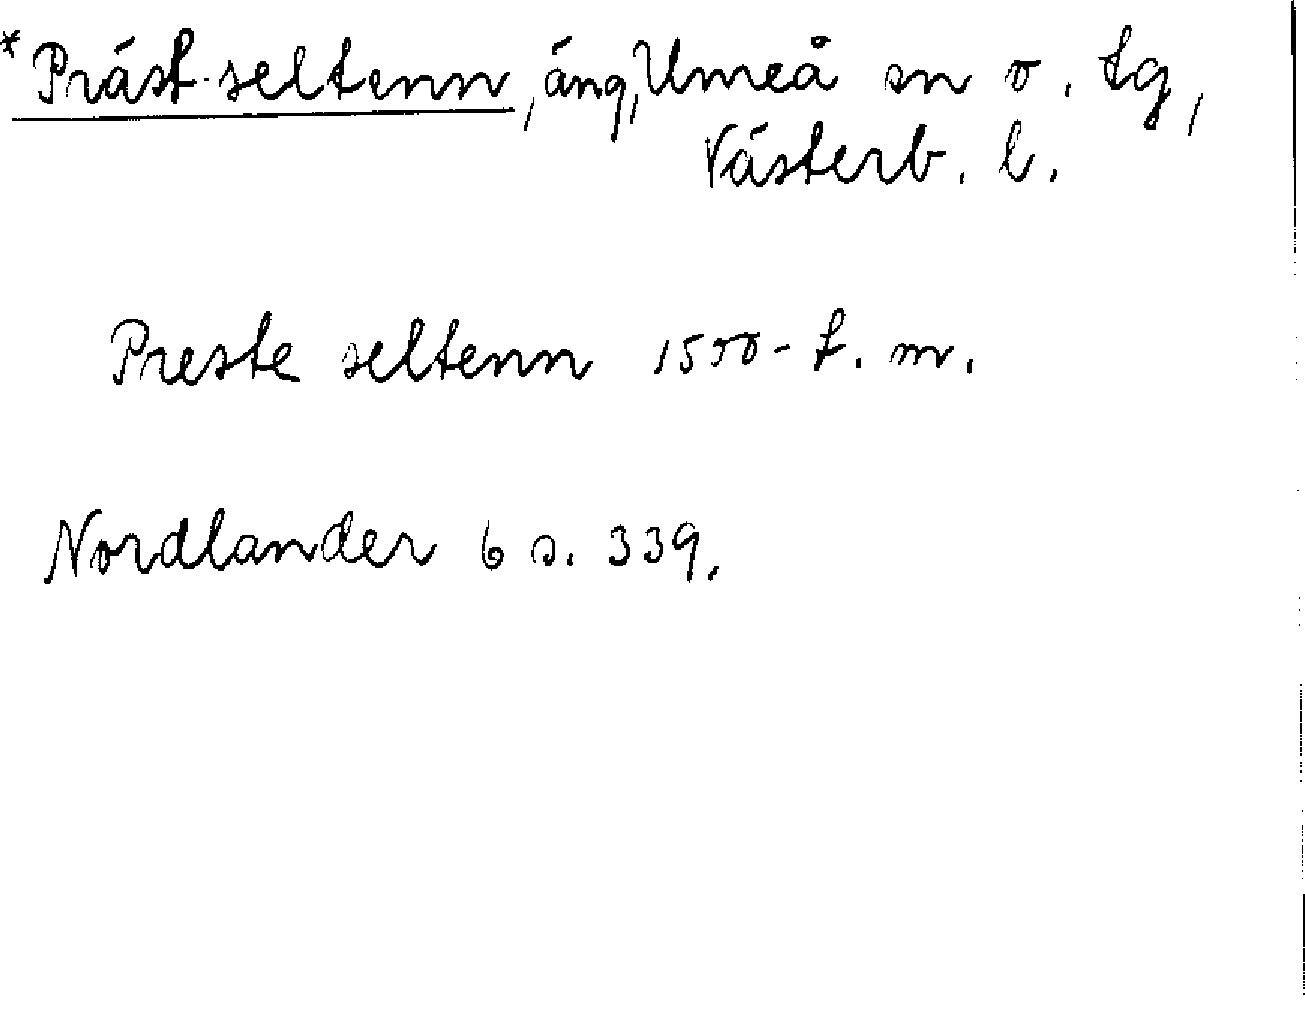 *Präst-seltenn, äng, Umeå sn o. tg,
Västerb. l.
Preste seltenn 1500-t. m.
Nordlander 6 s. 339.